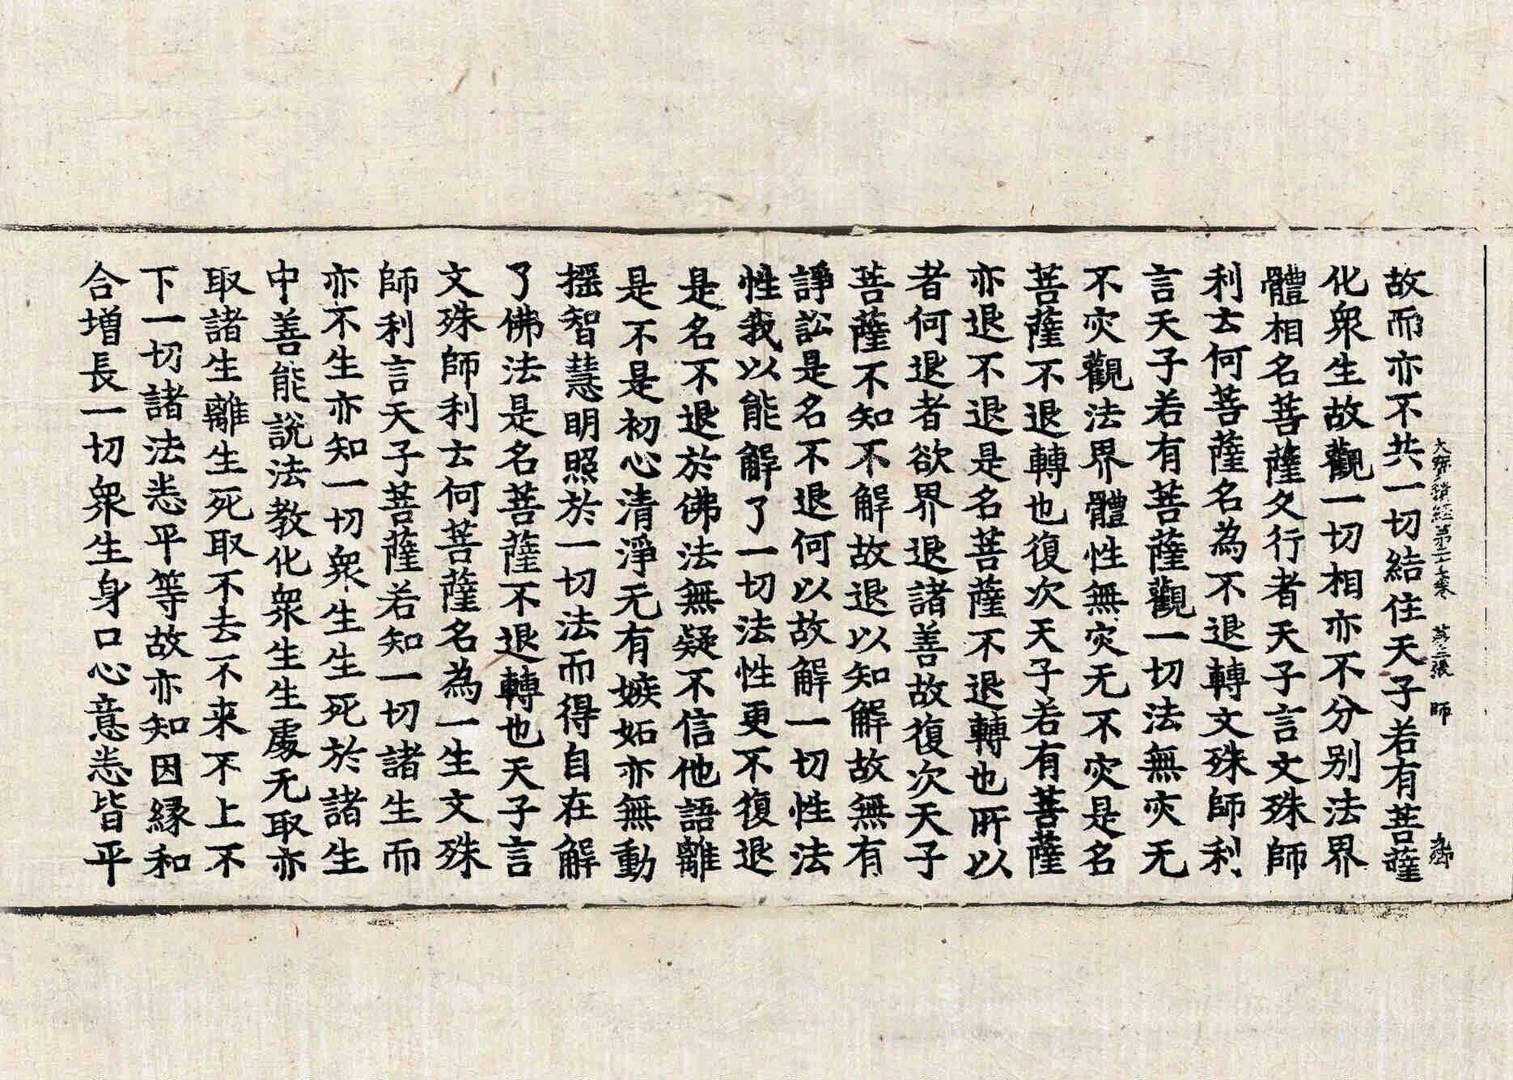 大寶積經第二十七卷 第三張 師
故而亦不共一切結住天子若有菩薩
化衆生故觀一切相亦不分别法界
體相名菩薩久行者天子言文殊師
利云何菩薩名為不退轉文殊師利
言天子若有菩薩觀一切法無灾无
不灾觀法界體性無灾无不灾是名
菩薩不退轉也復次天子若有菩薩
亦退不退是名菩薩不退轉也所以
者何退者欲界退諸善故復次天子
菩薩不知不解故退以知解故無有
諍訟是名不退何以故解一切性法
性我以能解了一切法性更不復退
是名不退於佛法無疑不信他語離
是不是初心清淨无有嫉妬亦無動
摇智慧明照於一切法而得自在解
了佛法是名菩薩不退轉也天子言
文殊師利云何菩薩名為一生文殊
師利言天子菩薩若知一切諸生而
亦不生亦知一切衆生生死於諸生
中善能說法教化衆生生處无取亦
取諸生離生死取不去不来不上不
下一切諸法悉平等故亦知因縁和
合増長一切衆生身口心意悉皆平